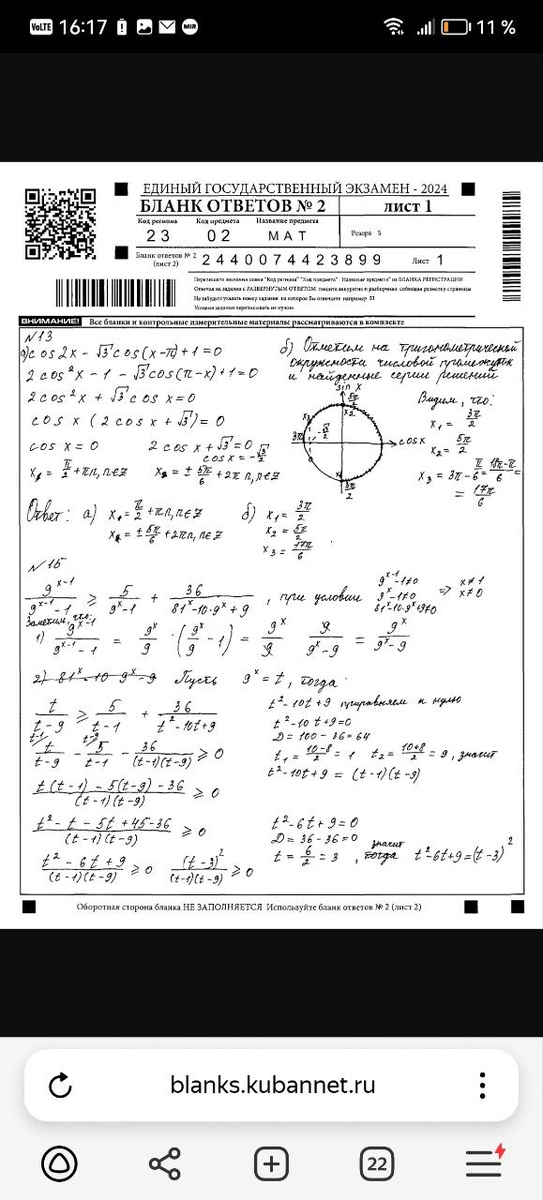 VoLTE 16:17
11 %
ЕДИНЫЙ ГОСУДАРСТВЕННЫЙ ЭКЗАМЕН - 2024
БЛАНК ОТВЕТОВ № 2
лист 1
Код региона
Код предмета
Название предмета
23
02
МАТ
Резерв 5
Бланк ответов № 2
(лист 2)
2440074423899
Лист 1
Перепишите значения полей "Код региона" "Код предмета" "Название предмета" из БЛАНКА РЕГИСТРАЦИИ
Отвечая на задания с РАЗВЕРНУТЫМ ОТВЕТОМ пишите аккуратно и разборчиво соблюдая разметку страницы
Не забудьте указать номер задания на которое Вы отвечаете например 31
Условия задания переписывать не нужно
ВНИМАНИЕ! Все бланки и контрольные измерительные материалы рассматриваются в комплекте
№13
а) cos2x - √3 cos(x-π)+1=0
2cos²x - 1 - √3cos(π-x)+1=0
2cos²x + √3cosx=0
cosx (2cosx+√3)=0
cosx=0 2cosx+√3=0
cosx=-√3/2
x₁=π/2+πn, n∈Z x₂=±5π/6+2πn, n∈Z
б) Отметим на тригонометрической
окружности числовой промежуток
и найденные серии решений
sin x
5π/2
x₂
x₃
3π
-√3/2
cosx
x₁
3π/2
Видим, что:
x₁=3π/2
x₂=5π/2
x₃=3π-π/6=(18π-π)/6=
=17π/6
Ответ: а) x₁=π/2+πn, n∈Z
x₂=±5π/6+2πn, n∈Z
б) x₁=3π/2
x₂=5π/2
x₃=17π/6
№15
9^(x-1)/(9^(x-1)-1) ≥ 5/(9^x-1) + 36/(81^x-10·9^x+9), при условии
9^(x-1)-1≠0
9^x-1≠0
81^x-10·9^x+9≠0
⇒ x≠1
x≠0
Заметим, что:
1) 9^(x-1)/(9^(x-1)-1) = 9^x/9 · (9^x/9-1) = 9^x/9 · 9/(9^x-9) = 9^x/(9^x-9)
2) 81^x-10·9^x-9 Пусть 9^x=t, тогда
t/(t-9) ≥ 5/(t-1) + 36/(t²-10t+9)
t/(t-9) - 5/(t-1) - 36/((t-1)(t-9)) ≥ 0
(t(t-1)-5(t-9)-36)/((t-1)(t-9)) ≥ 0
(t²-t-5t+45-36)/((t-1)(t-9)) ≥ 0
(t²-6t+9)/((t-1)(t-9)) ≥ 0 (t-3)²/((t-1)(t-9)) ≥ 0
t²-10t+9 приравняем к нулю
t²-10t+9=0
D=100-36=64
t₁=(10-8)/2=1 t₂=(10+8)/2=9, значит
t²-10t+9=(t-1)(t-9)
t²-6t+9=0
D=36-36=0
t=6/2=3, значит тогда t²-6t+9=(t-3)²
Оборотная сторона бланка НЕ ЗАПОЛНЯЕТСЯ Используйте бланк ответов № 2 (лист 2)
blanks.kubannet.ru
22